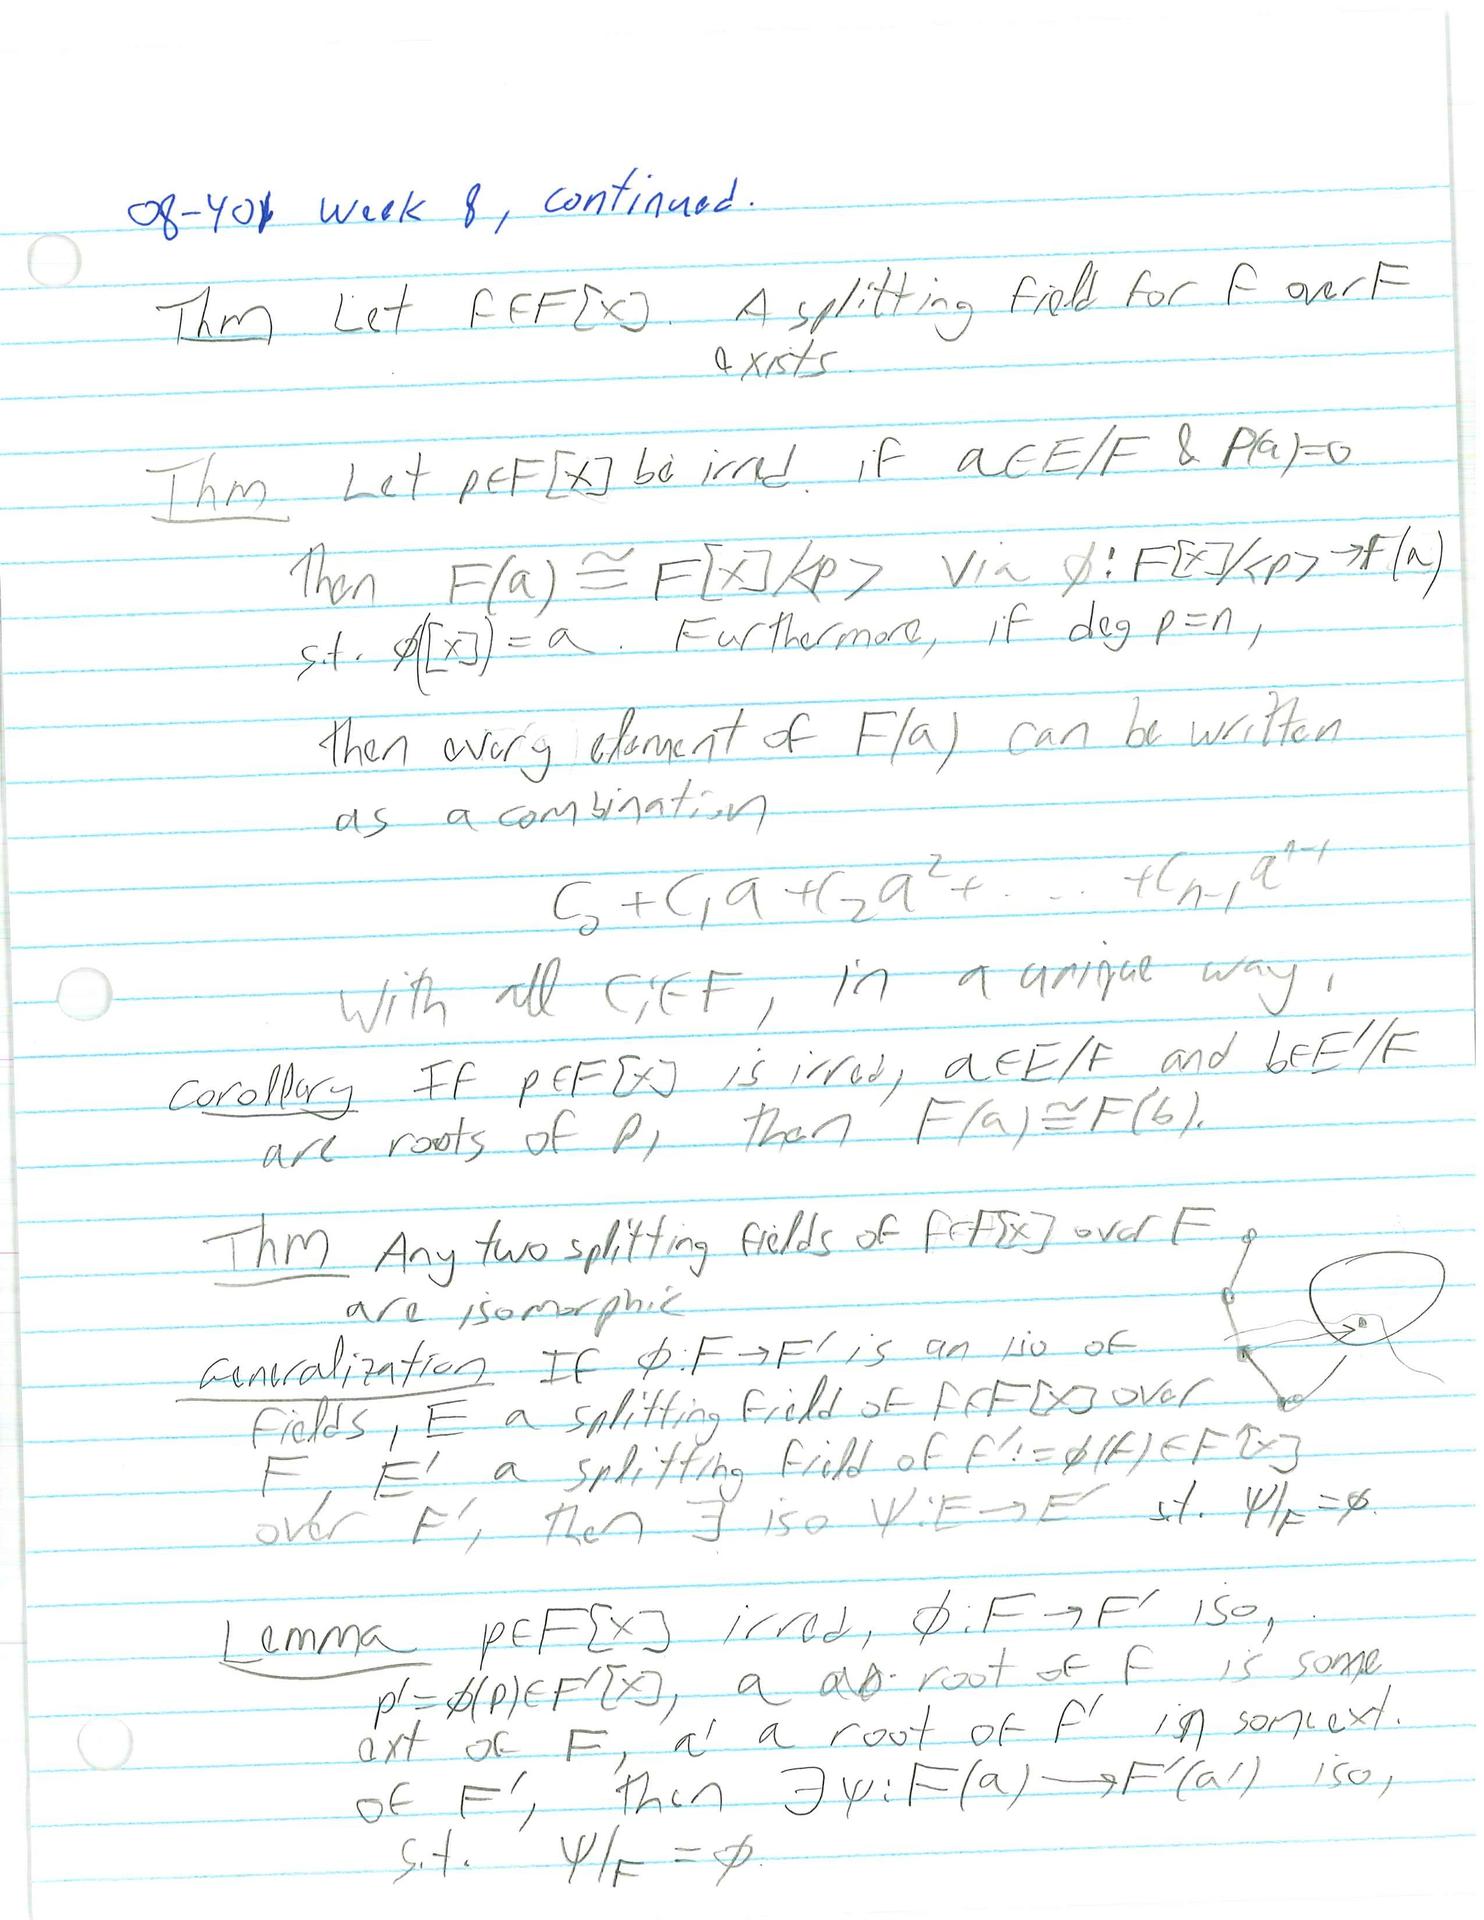 08-401 Week 8, continued.
Thm Let f∈F[x]. A splitting field for f over F
exists.
Thm Let p∈F[x] be irred. if a∈E/F & P(a)=0
then F(a) ≅ F[x]/<p> via ϕ: F[x]/<p> → F(a)
s.t. ϕ([x]) = a. Furthermore, if deg p=n,
then every element of F(a) can be written
as a combination
C₀ + C₁a + C₂a² + . . . . + Cₙ₋₁aⁿ⁻¹
with all Cᵢ∈F, in a unique way.
Corollary If p∈F[x] is irred, a∈E/F and b∈E'/F
are roots of p, then F(a)≅F(b).
Thm Any two splitting fields of f∈F[x] over F
are isomorphic
Generalization If ϕ:F→F' is an iso of
fields, E a splitting field of f∈F[x] over
F, E' a splitting field of f':=ϕ(f)∈F'[x]
over F', then ∃ iso ψ:E→E' s.t. ψ|_F=ϕ.
Lemma p∈F[x] irred, ϕ:F→F' iso,
p'=ϕ(p)∈F'[x], a root of f is some
ext of F, a' a root of f' in some ext.
of F', then ∃ψ:F(a)→F'(a') iso,
s.t. ψ|_F = ϕ.